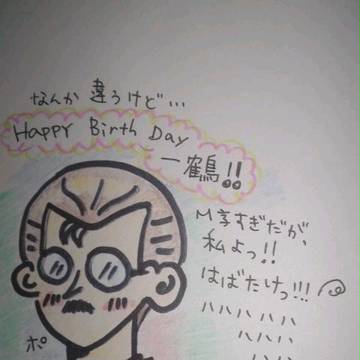 なんか違うけど…
Happy Birth Day
一鶴!!
M字すぎだが、
私よっ!!
はばたけっ!!!
ハハハハハ
ハハハ
ポ